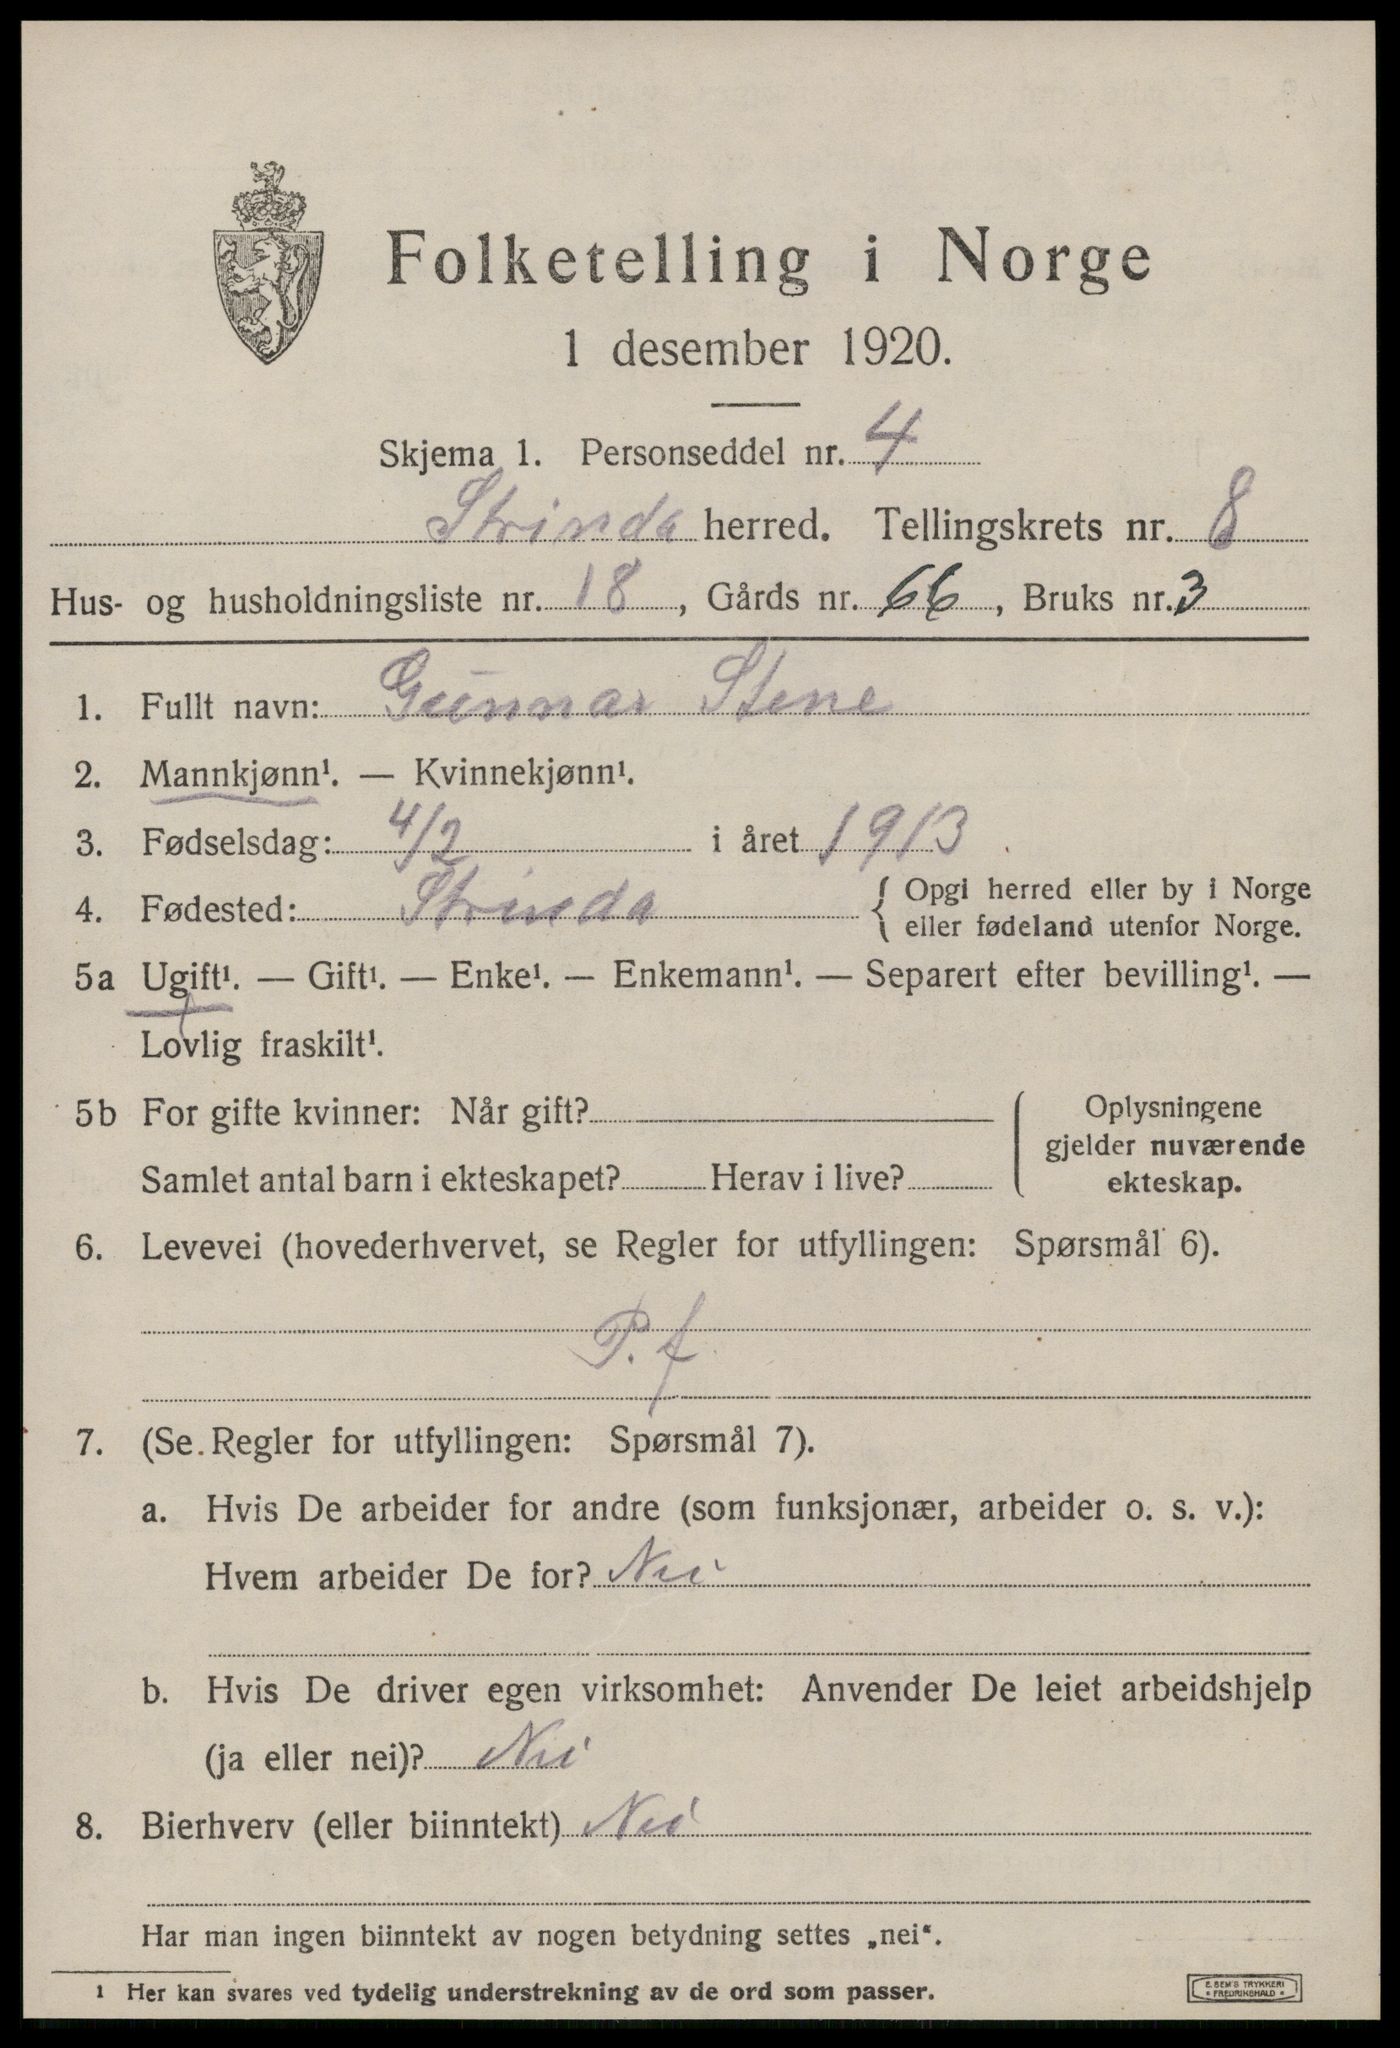 Folketelling i Norge
1 desember 1920.
Skjema 1. Personseddel nr. 4
Strinda herred. Tellingskrets nr. 8
Hus- og husholdningsliste nr. 18, Gårds nr. 66, Bruks nr. 3
1. Fullt navn: Gunnar Stene
2. Mannkjønn¹. — Kvinnekjønn¹.
3. Fødselsdag: 4/2 i året 1913
4. Fødested: Strinda { Opgi herred eller by i Norge
eller fødeland utenfor Norge.
5a Ugift¹. — Gift¹. — Enke¹. — Enkemann¹. — Separert efter bevilling¹. —
Lovlig fraskilt¹.
5b For gifte kvinner: Når gift?
Samlet antal barn i ekteskapet? Herav i live?
Oplysningene
gjelder nuværende
ekteskap.
6. Levevei (hovederhvervet, se Regler for utfyllingen: Spørsmål 6).
P. f
7. (Se Regler for utfyllingen: Spørsmål 7).
a. Hvis De arbeider for andre (som funksjonær, arbeider o. s. v.):
Hvem arbeider De for? Nei
b. Hvis De driver egen virksomhet: Anvender De leiet arbeidshjelp
(ja eller nei)? Nei
8. Bierhverv (eller biinntekt) Nei
Har man ingen biinntekt av nogen betydning settes „nei“.
1 Her kan svares ved tydelig understrekning av de ord som passer.
E. SEM'S TRYKKERI
FREDRIKSHALD